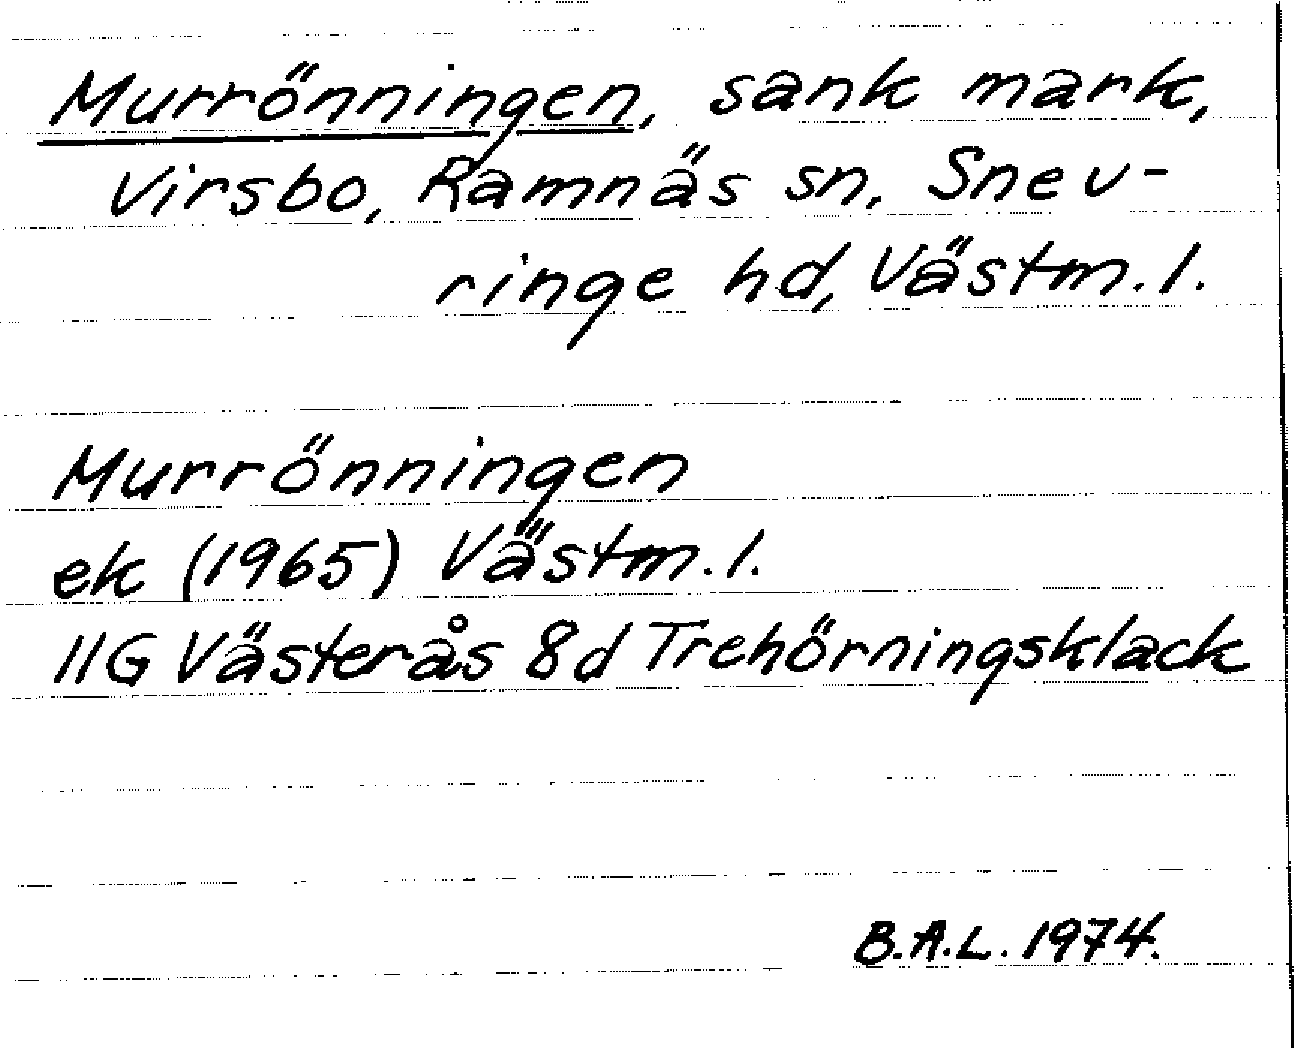 Murrönningen, sank mark,
Virsbo, Ramnäs sn, Snev-
ringe hd, Västm. l.
Murrönningen
ek (1965) Västm. l.
11G Västerås 8d Trehörningsklack
B.A.L. 1974.